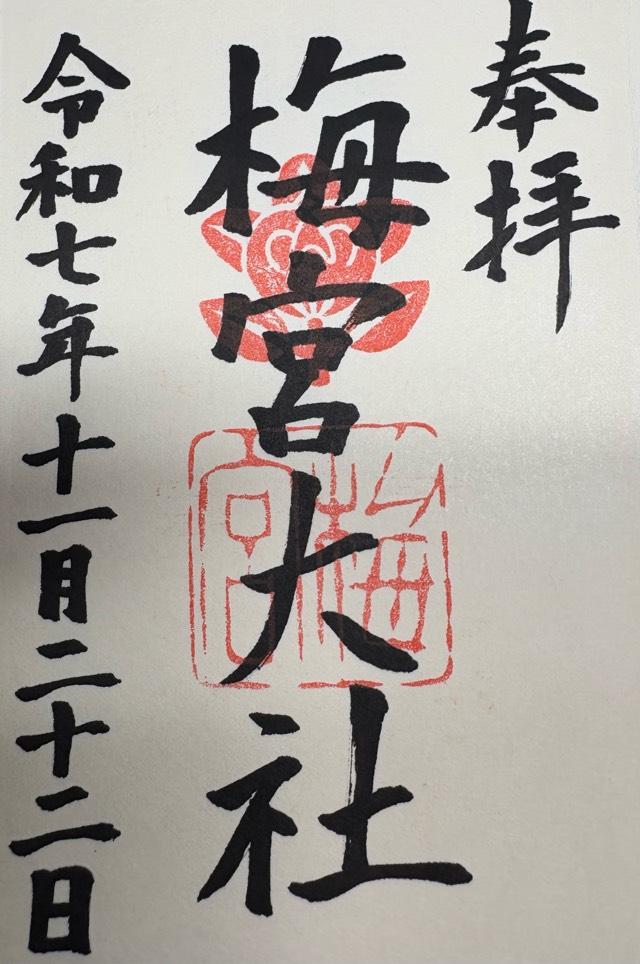 奉拝
梅宮大社
梅宮
令和七年十一月二十二日